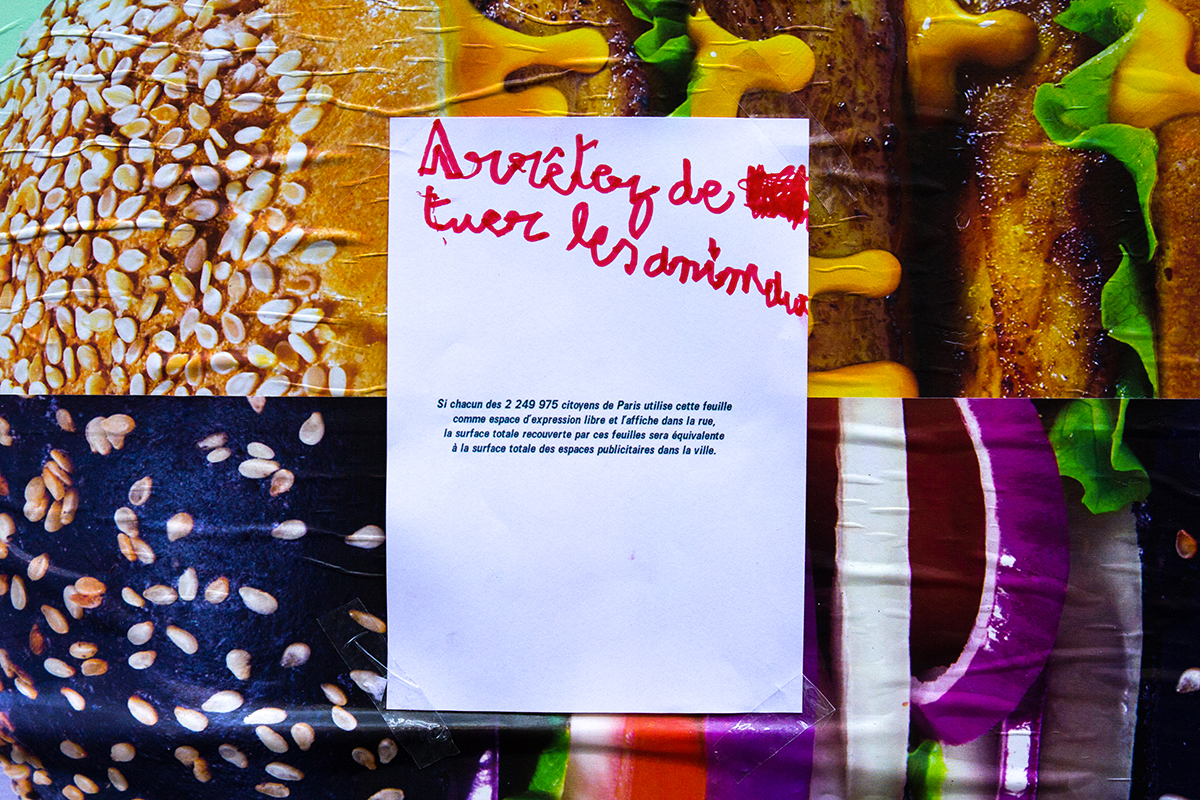 Arrêtez de
tuer les animau
Si chacun des 2 249 975 citoyens de Paris utilise cette feuille
comme espace d'expression libre et l'affiche dans la rue,
la surface totale recouverte par ces feuilles sera équivalente
à la surface totale des espaces publicitaires dans la ville.